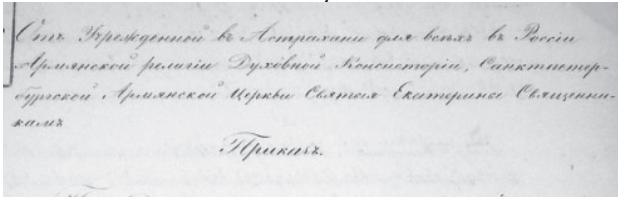 Отъ Учрежденной въ Астрахани для всѣхъ въ Россіи
Армянской религіи Духовной Консисторіи, Санктпетер-
бургской Армянской Церкви Святыя Екатерины Священни-
камъ
Приказъ.